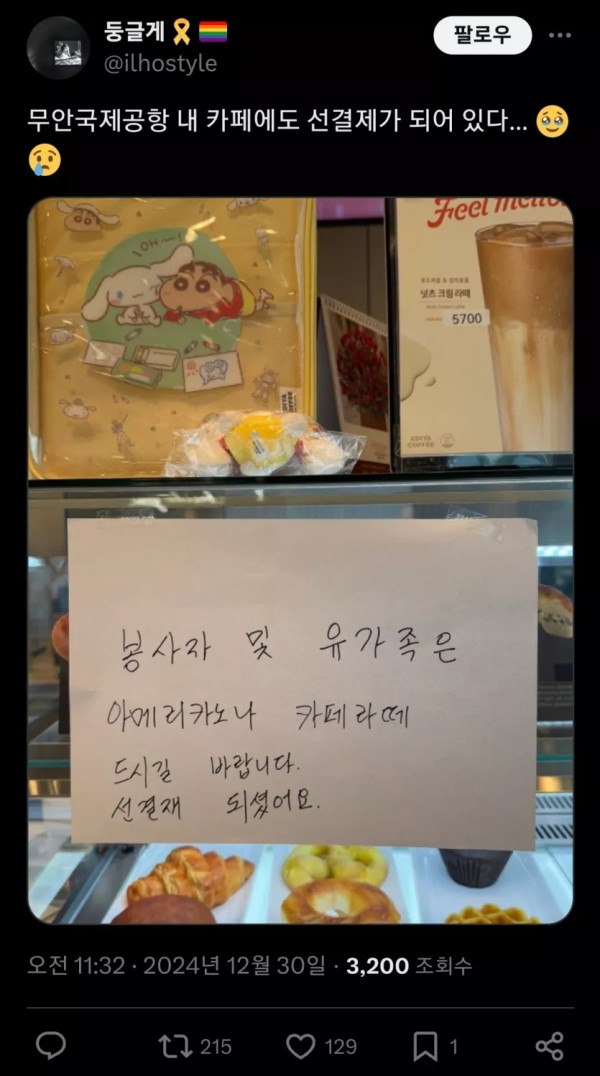 둥글게🎗️🏳️‍🌈
@ilhostyle
팔로우
무안국제공항 내 카페에도 선결제가 되어 있다... 🥹
😢
OH~!
Feel
넛츠 크림 라떼
5700
EDIYA
COFFEE
EDIYA
COFFEE
봉사자 및 유가족은
아메리카노나 카페라떼
드시길 바랍니다.
선결재 되셨어요.
오전 11:32 · 2024년 12월 30일 · 3,200 조회수
215
129
1